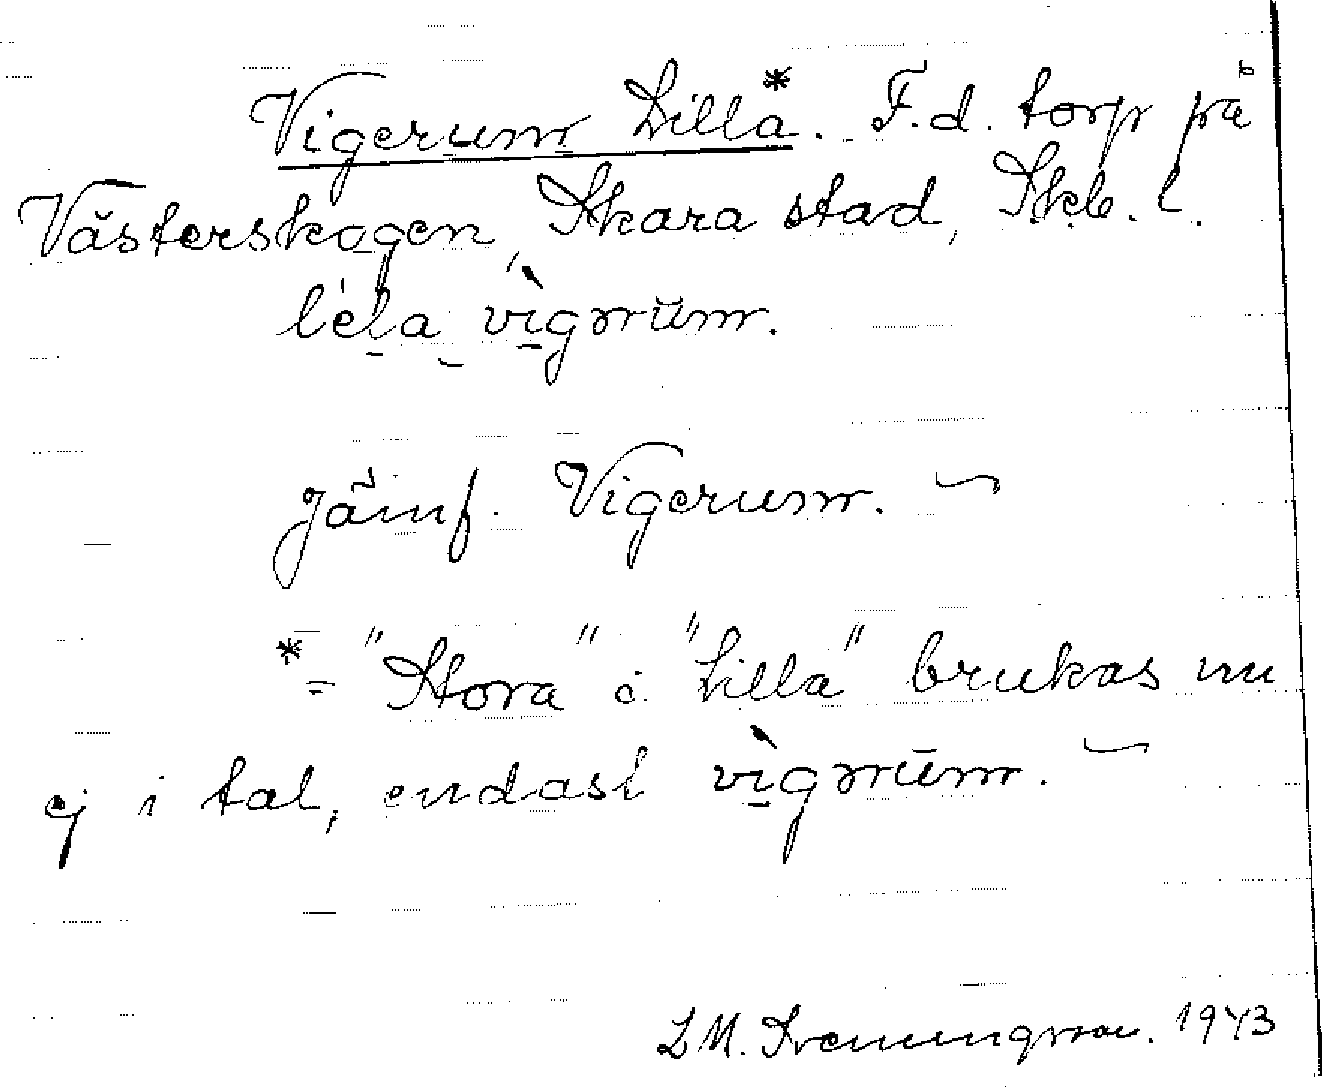 Vigerum Lilla*. F.d. torp på
Västerskogen, Skara stad, Skb. l.
lela vìgrum.
Jämf. Vigerum. ~
* = "Stora" o. "Lilla" brukas nu
ej i tal, endast vìgrum. ~
1943